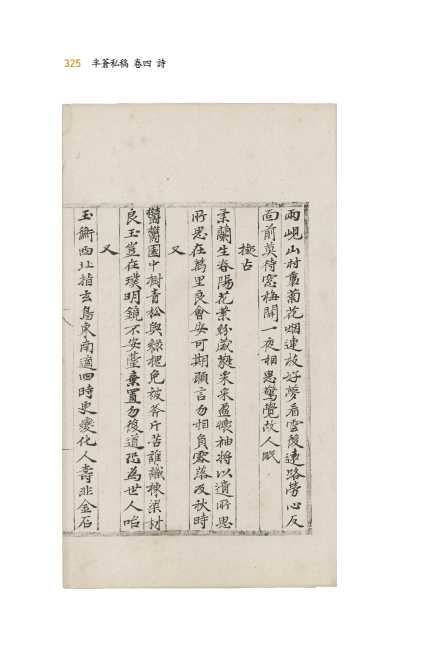 325 半蒼私稿 卷四 詩
雨峴山村裏菊花烟連枝好夢看雲復遠路勞心反
向前莫待窓梅開一夜相思驚覺故人眠
擬古
采蘭生春陽花葉紛葳蕤采采盈懷袖將以遺所思
所思在萬里良會安可期願言勿相負零落及秋時
又
鬱鬱園中樹青松與綠杞免被斧斤苦誰識棟梁材
良玉豈在璞明鏡不安䑓棄置勿復道恐為世人咍
又
玉衡西北指玄鳥東南適四時更變化人壽非金石